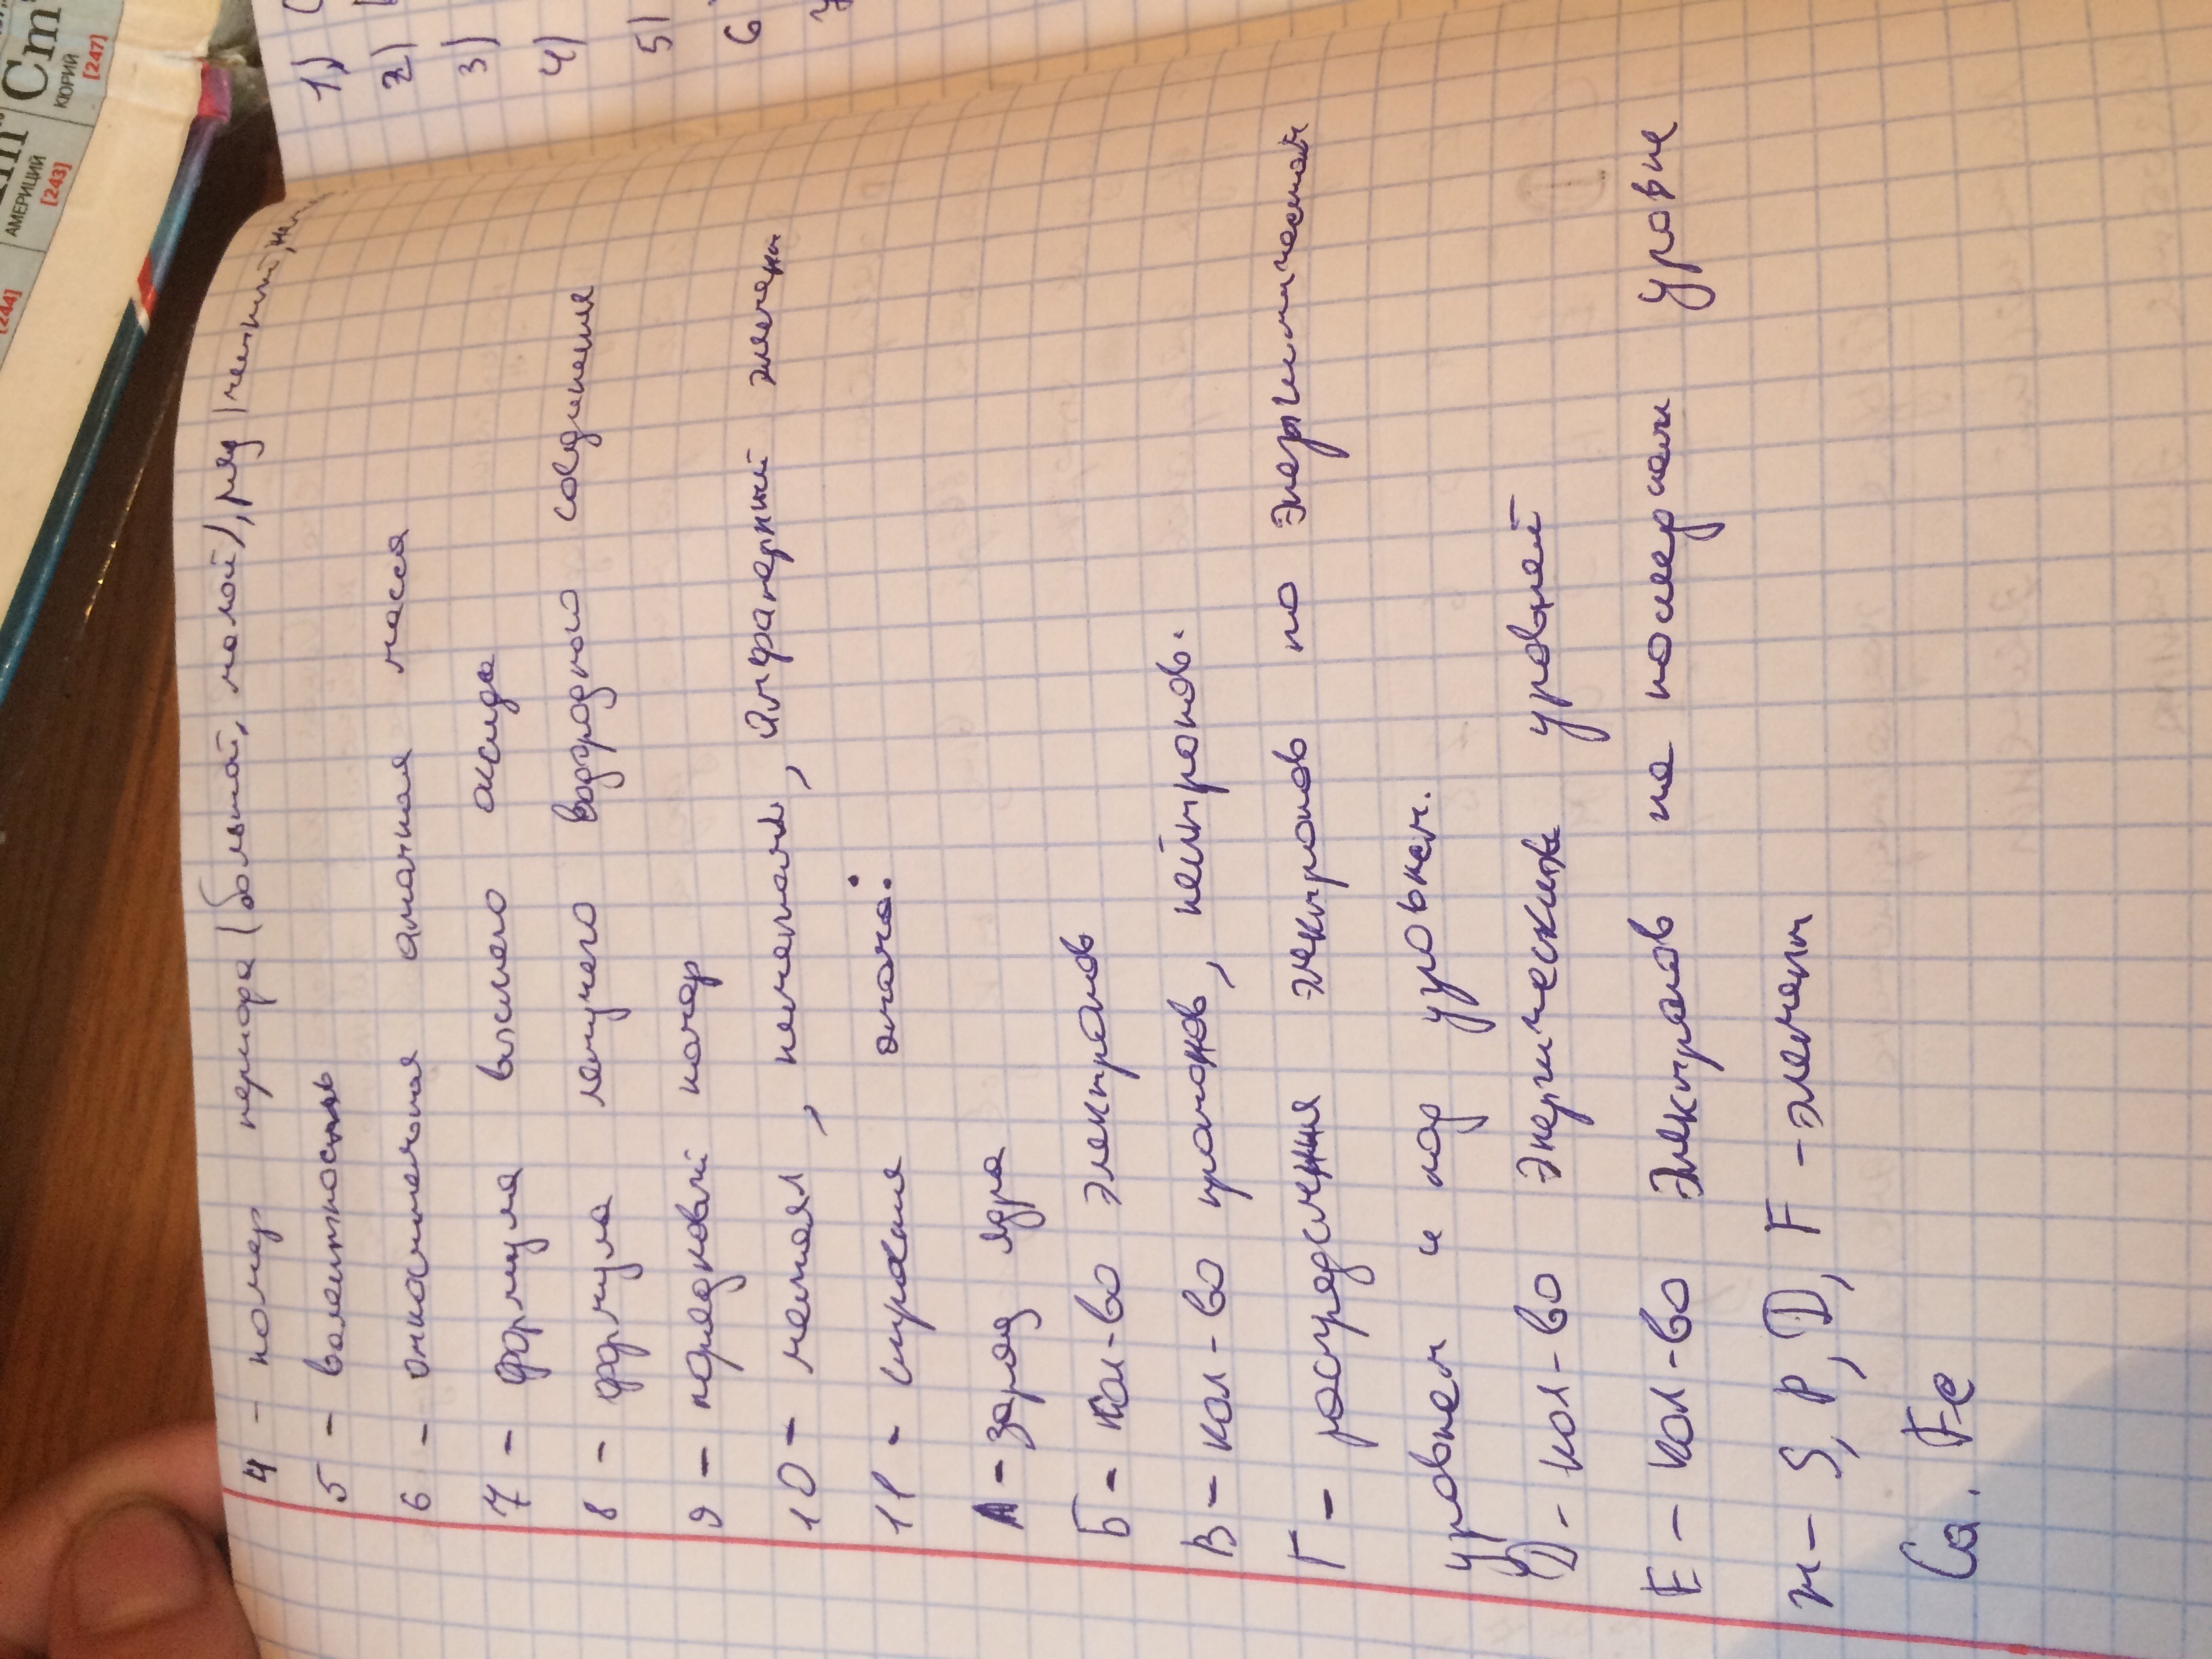 1)
2)
3)
4)
5)
6
Cm
КЮРИЙ
[247]
АМЕРИЦИЙ
[243]
[244]
4 - номер периода (большой, малой), ряд (четный, не
5 - валентность
6 - относительная атомная масса
7 - формула высшего оксида
8 - формула летучего водродного соединения
9 - порядковый номер
10 - металл, неметалл, Амфатерный элемен
11 - строение атома:
А - заряд ядра
Б - кол-во электронов
В - кол-во протонов, нейтронов.
Г - роспредиление электронов по энергитическим
уровнем и под уровнем.
Д - кол-во энергитические уровней
Е - кол-во электронов на последнем уровне
ж - S, P, D, F - элемент
Ca. Fe